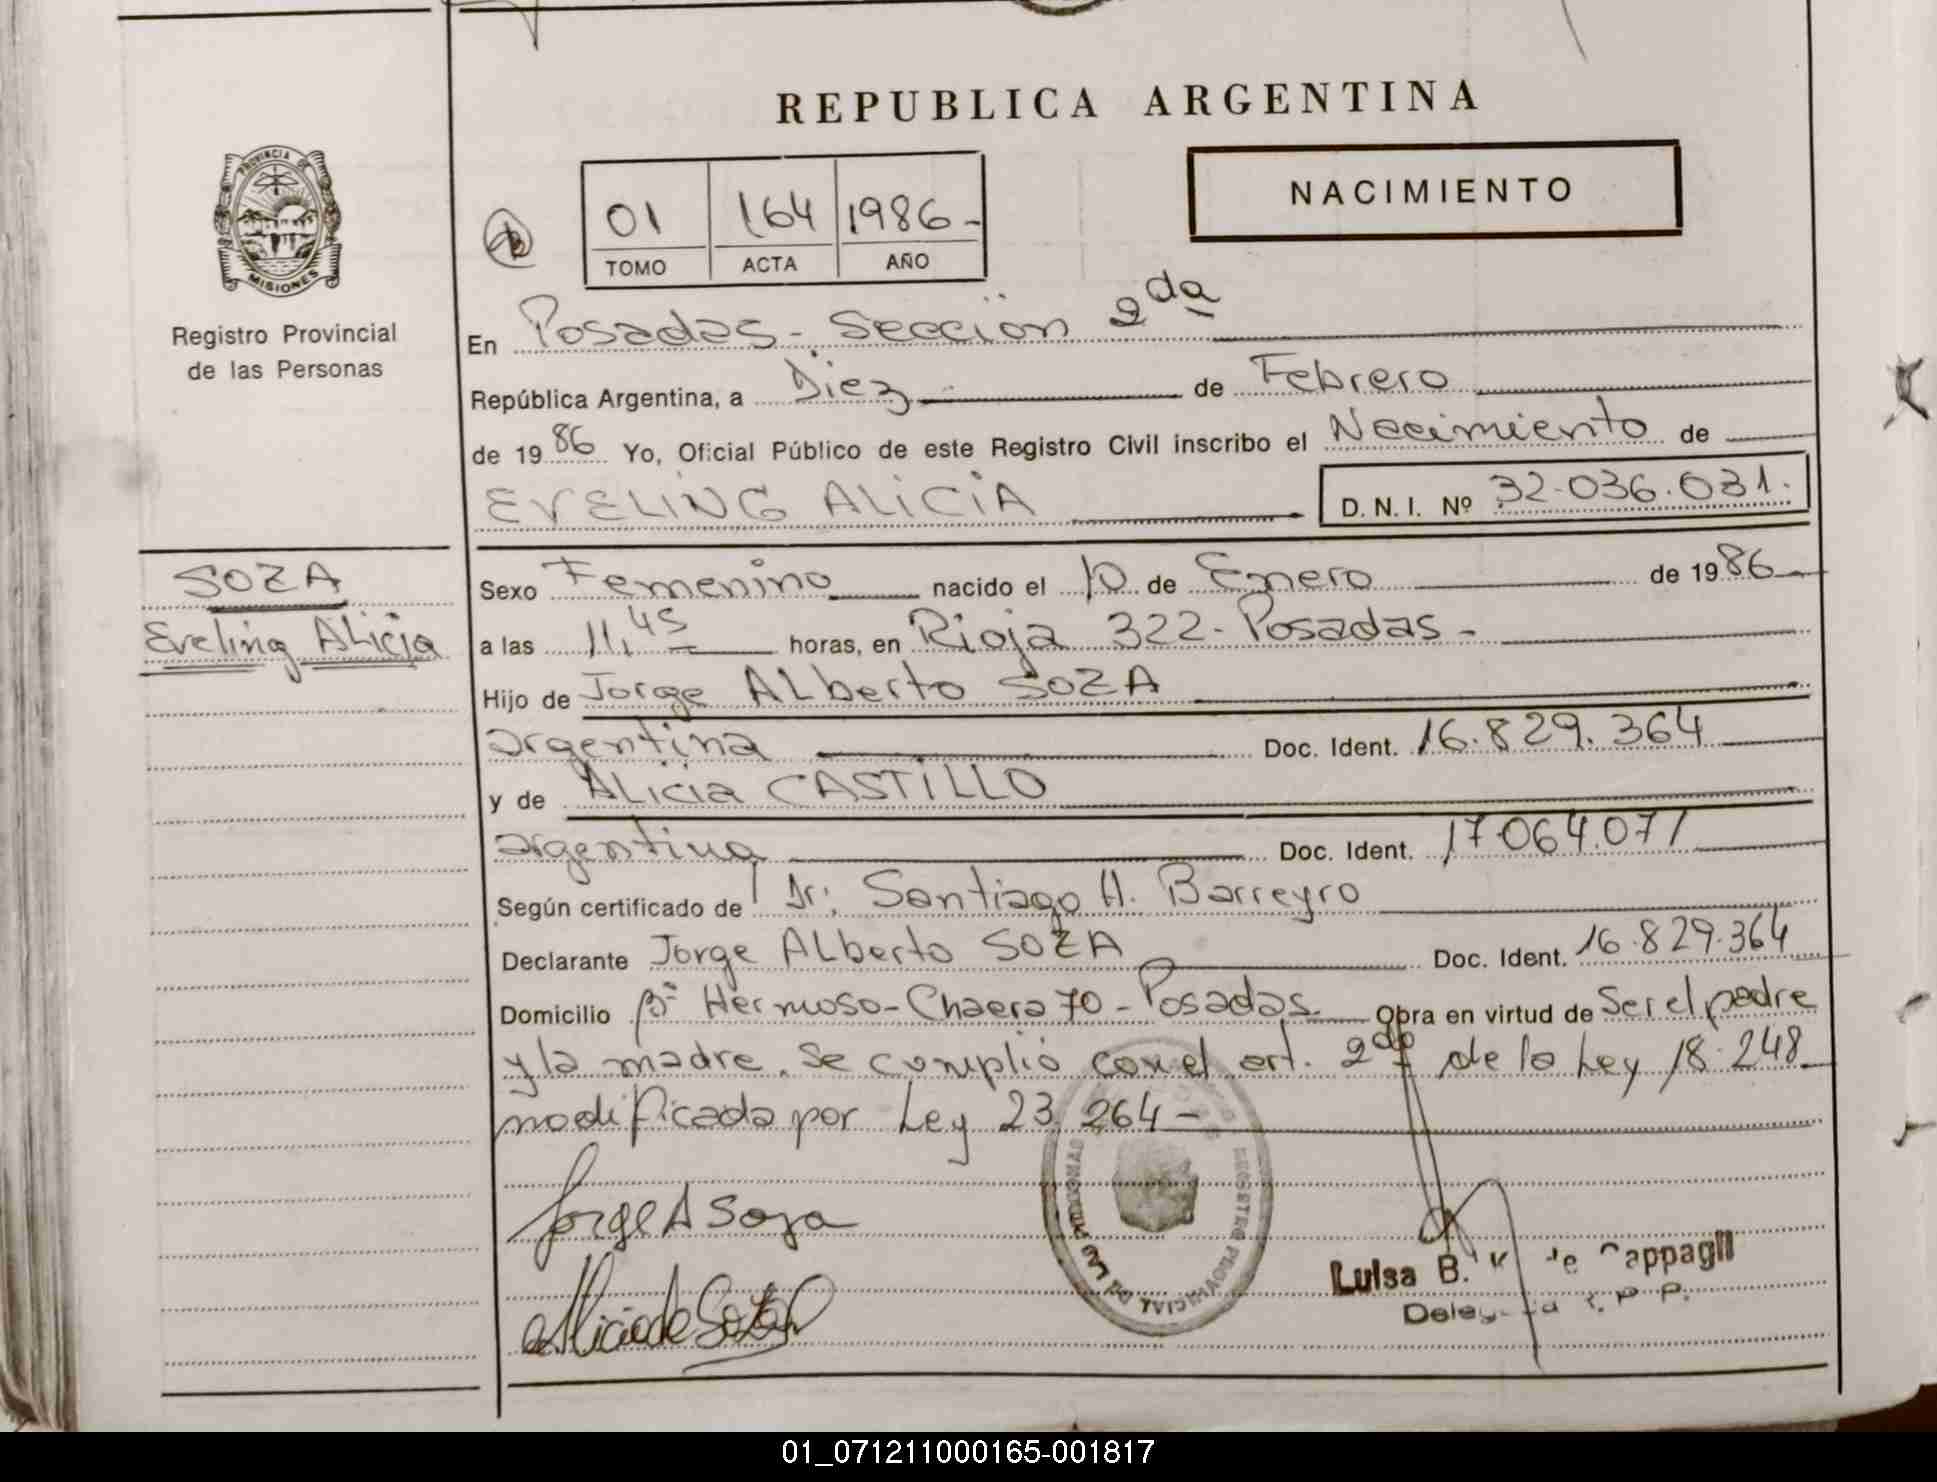 REPUBLICA ARGENTINA
PROVINCIA DE
MISIONES
Registro Provincial
de las Personas
01 164 1986-
TOMO ACTA AÑO
NACIMIENTO
En Posadas - Sección 2da
República Argentina, a Diez de Febrero
de 1986 Yo, Oficial Público de este Registro Civil inscribo el Nacimiento de
EVELING ALICIA D. N. I. Nº 32.036.031.
SOZA
Eveling Alicia
Sexo Femenino nacido el 10 de Enero de 1986-
a las 11,45 horas, en Rioja 322 - Posadas -
Hijo de Jorge Alberto SOZA
argentina Doc. Ident. 16.829.364
y de Alicia CASTILLO
argentina Doc. Ident. 17.064.071
Según certificado de Dr: Santiago H. Barreyro
Declarante Jorge Alberto SOZA Doc. Ident. 16.829.364
Domicilio Bº Hermoso - Chacra 70 - Posadas Obra en virtud de Ser el padre
y la madre. Se cumplió con el art. 2do de la Ley 18.248
modificada por Ley 23.264 -
Jorge A Soza
Alicia de Soza
REGISTRO PROVINCIAL DE LAS PERSONAS
Luisa B. de Cappagli
01_071211000165-001817